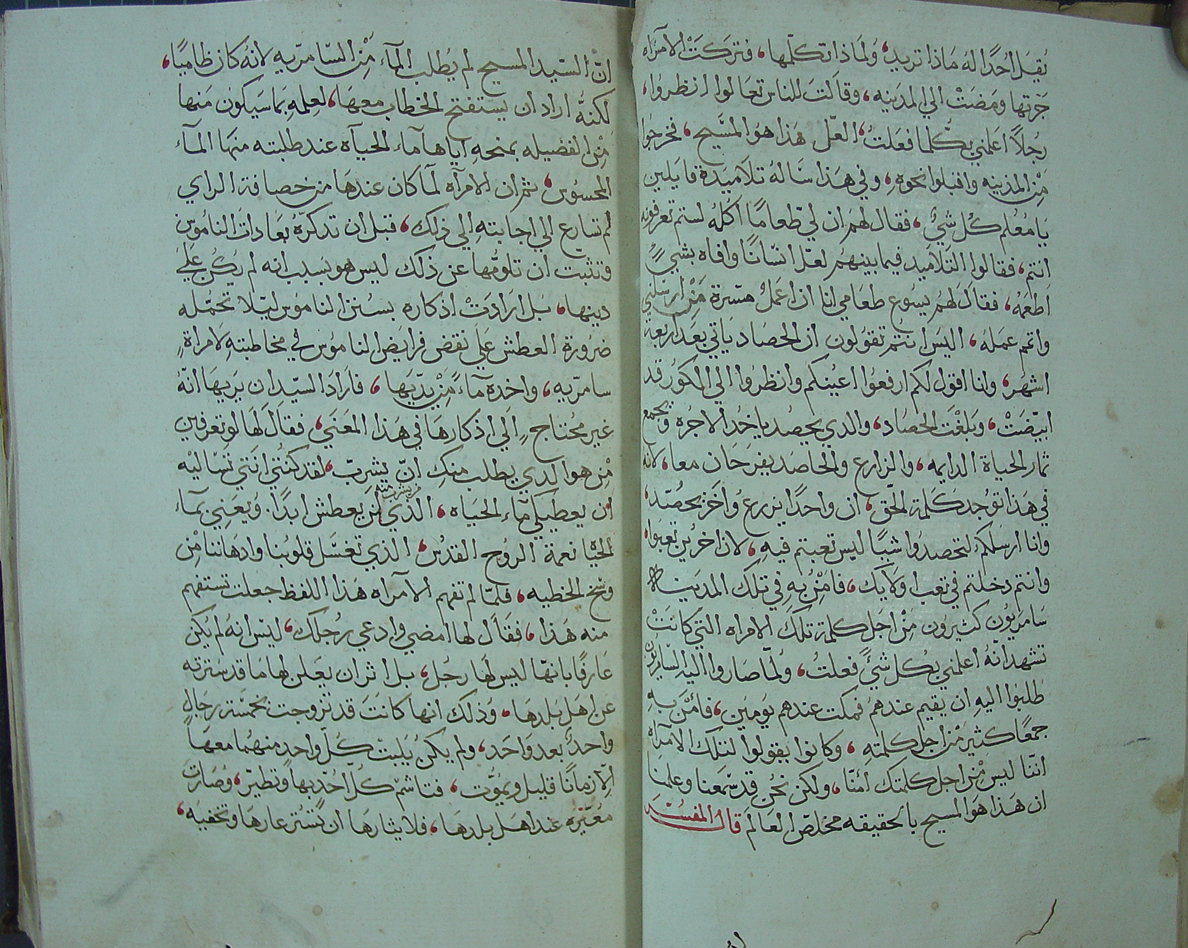 نقل احدا له ماذا تريد، ولماذا تكلمها، فتركت الامرآه
جرتها ومضت الي المدينه، وقالت للناس تعالوا انظروا،
رجلاً اعلمني بكلما فعلت، العل هذا هو المسيح، فخرجوا
من المدينه واقبلوا نحوه، وفي هذا ساله تلاميذه قايلين
يا معلم كل شي، فقال لهم ان لي طعامًا اكله لستم تعرفونه
انتم، فقالوا التلاميد فيما بينهم لعل انسانًا وافاه بشيٍ
اطعمه، فقال لهم يسوع طعامي انا ان اعمل مسرة من ارسلني
واتمم عمله، اليس انتم تقولون ان الحصاد ياتي بعد اربعة
اشهر، وانا اقول لكم ارفعوا اعينكم وانظروا الي الكور قد
ابيضت، وبلغت الحصاد، والدي يحصد ياخد الاجره ويجمع
ثمار الحياة الدايمه، والزارع والحاصد يفرحان معا، لانه
في هذا توجد كلمة الحق، ان واحدًا يزرع واخر يحصد،
وانا ارسلتكم لتحصدوا شيًا ليس تعبتم فيه، لان اخرين تعبوا،
وانتم دخلتم في تعب اولايك، فامن به في تلك المدينه
سامريون كثيرون من اجل كلمة تلك الامراه التي كانت
تشهد انه اعلمني بكل شيً فعلت، ولما صاروا اليه السامريين
طلبوا اليه ان يقيم عندهم فمكت عندهم يومين، فامن به
جمعًا كثير من اجل كلمته، وكانوا يقولوا لتلك الامرآه
اننا ليس من اجل كلمتك امنا، ولكن نحن قد سمعنا وعلمنا
ان هذا هو المسيح بالحقيقه مخلص العالم قال المفسر
ان السيد المسيح لم يطلب المآء من السامريه لانه كان ظاميًا،
لكنه اراد ان يستفتح الخطاب معها، لعلمه بما سيكون منها
من الفضيله بمنحه اياها مآء الحياة عند طلبته منها المآء
المحسوس، ثم ان الامرآه لما كان عندها من خصافة الراي
لم تسارع الي اجابته الي ذلك، قبل ان تدكره بعادات الناموس
فنثبت ان تلومها عن ذلك ليس هو بسبب انه لم يكن علي
دينها، بل ارادت اذكاره بسنن الناموس ليلا تحمله
ضرورة العطش علي نقض فرايض الناموس في مخاطبته لامراةٍ
سامريه، واحده مآءً من يديها، فاراد السيد ان يريها انه
غير محتاجٍ الي اذكارها في هذا المعني، فقال لها لو تعرفين
من هو الدي يطلب منك ان يشرب، لقد كنتي انتي تساليه
ان يعطيكي مآء الحياه، الذي من يشرب منه لن يعطش ابدًا، ويعني بمآء
الحياة نعمة الروح القدس، الذي تغسل قلوبنا وادهاننا من
وسخ الخطيه، فلما لم تفهم الامرآه هذا اللفظ جعلت تستفهم
منه هذا، فقال لها امضي وادعي رجلك، ليس انه لم يكن
عارفًا بانها ليس لها رجل، بل اثر ان يعلن لها ما قد سترته
عن اهل بلدها، وذلك انها كانت قد تزوجت بخمسة رجالٍ
واحدًا بعد واحد، ولم يكن يلبت كل واحد منهما معها
الا زمانًا قليل ويموت، فتاشم كل احد بها وتطير، وصارت
معتبره عند اهل بلدها، فلايثارها ان تستر عارها وتخفيه،